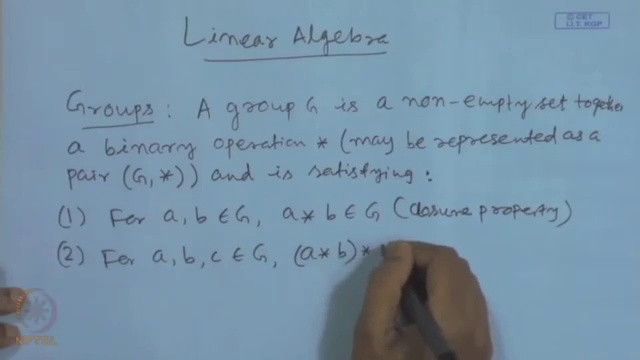 © CET
I.I.T. KGP
Linear Algebra
Groups : A group G is a non-empty set together
a binary operation * (may be represented as a
pair (G, *)) and is satisfying :
(1) For a, b ∈ G, a * b ∈ G (closure property)
(2) For a, b, c ∈ G, (a * b) *
NPTEL